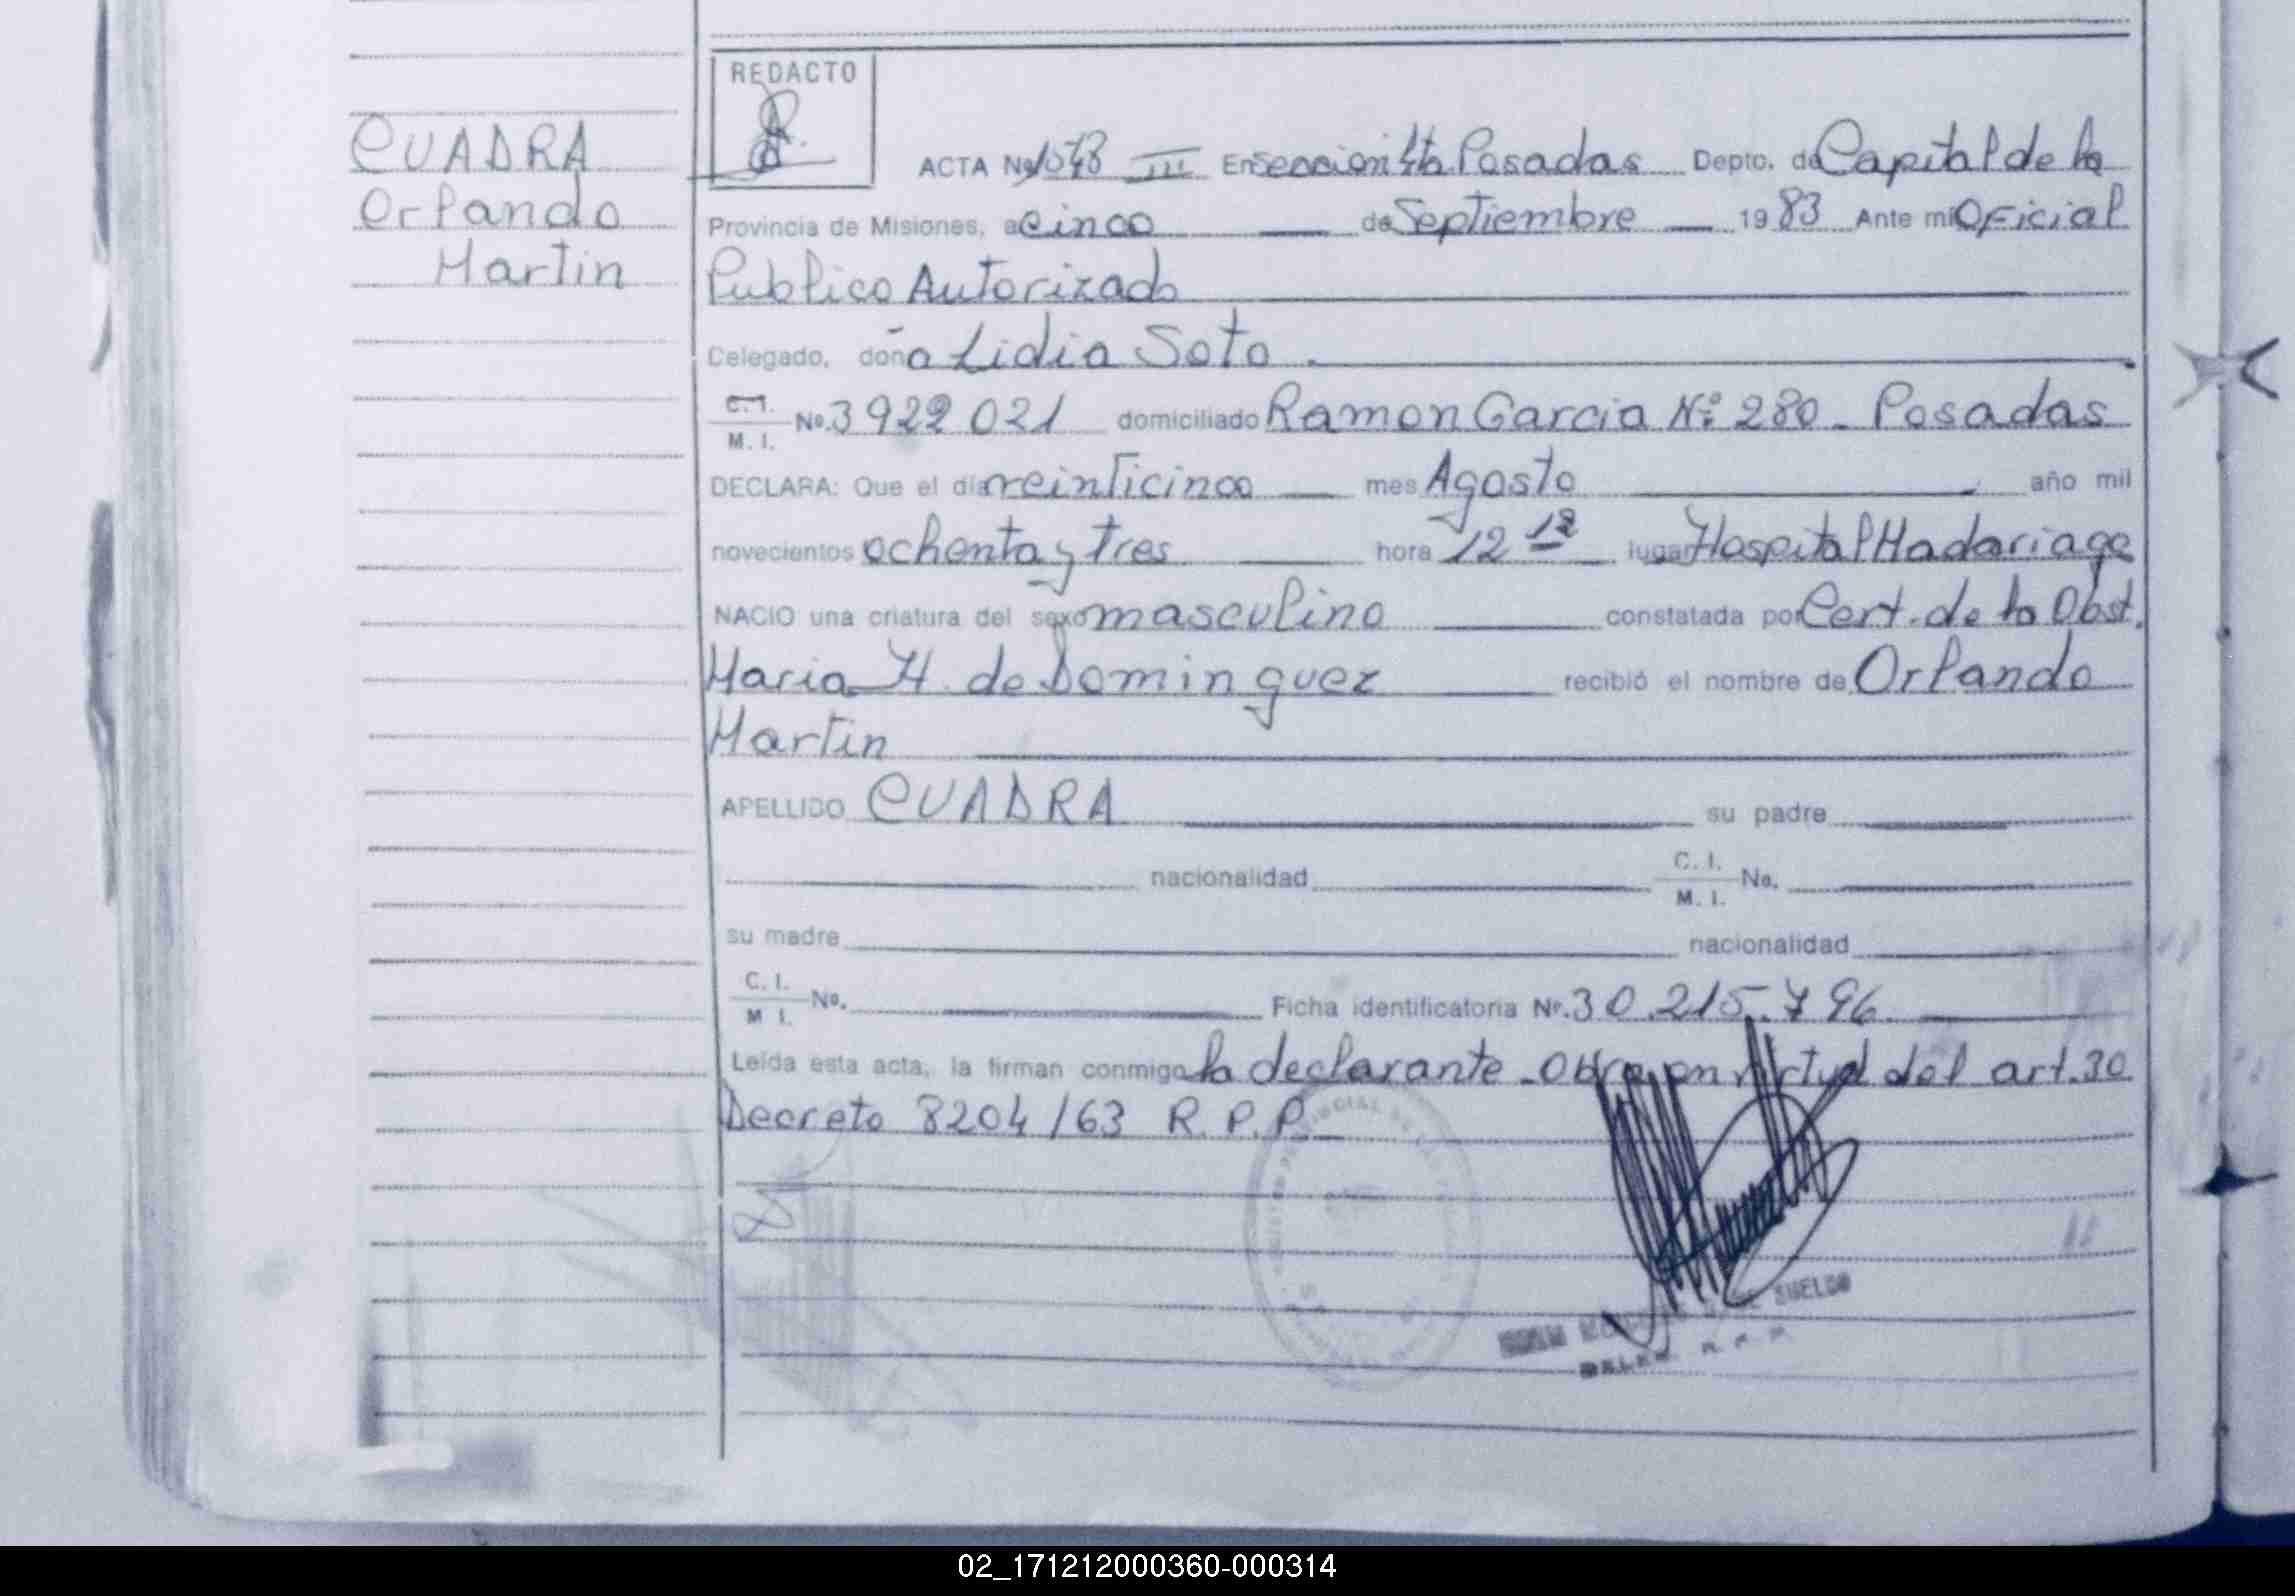 REDACTO
CUADRA
Orlando
Martin
ACTA No 1078 III En Seccion 4ta Posadas Depto. de Capital de la
Provincia de Misiones, a cinco de Septiembre 19 83 Ante mi Oficial
Publico Autorizado
Celegado, doña Lidia Soto.
C.I. M.I. No. 3922021 domiciliado Ramon Garcia Nº 280 - Posadas
DECLARA: Que el día veinticinco mes Agosto año mil
novecientos ochenta y tres hora 12 12 lugar Hospital Madariaga
NACIO una criatura del sexo masculino constatada por Cert. de la Obst.
Maria H. de Dominguez recibió el nombre de Orlando
Martin
APELLIDO CUADRA su padre
nacionalidad C. I. M. I. No.
su madre nacionalidad
C. I. M I. No. Ficha identificatoria Nº. 30.215.796
Leída esta acta, la firman conmigo la declarante - Obra en virtud del art. 30
Decreto 8204/63 R.P.P.
SUELDO
02_171212000360-000314